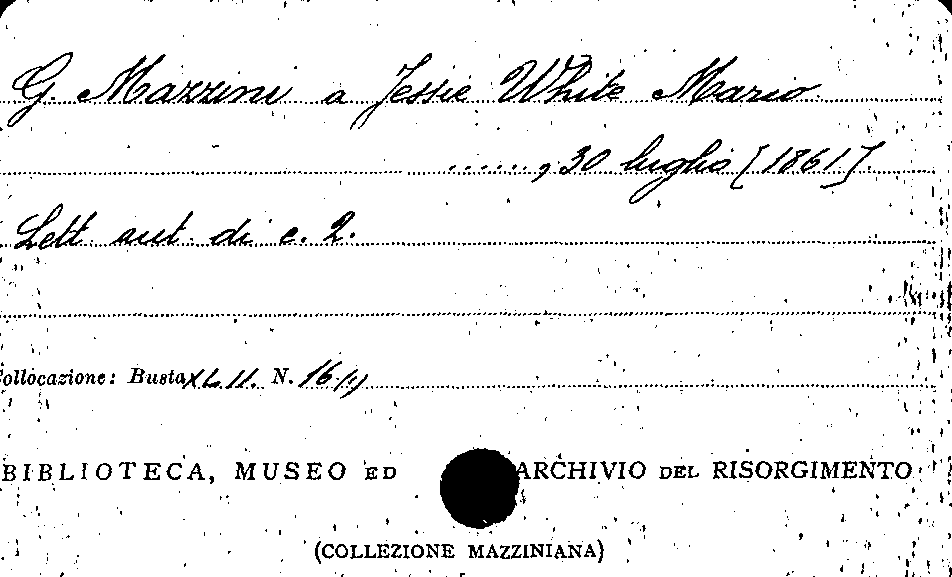 G. Mazzini a Jessie White Mario
......, 30 luglio [1861].
Lett. aut. di c. 2.
Collocazione: Busta XLII. N. 16/1)
BIBLIOTECA, MUSEO ED ARCHIVIO DEL RISORGIMENTO
(COLLEZIONE MAZZINIANA)